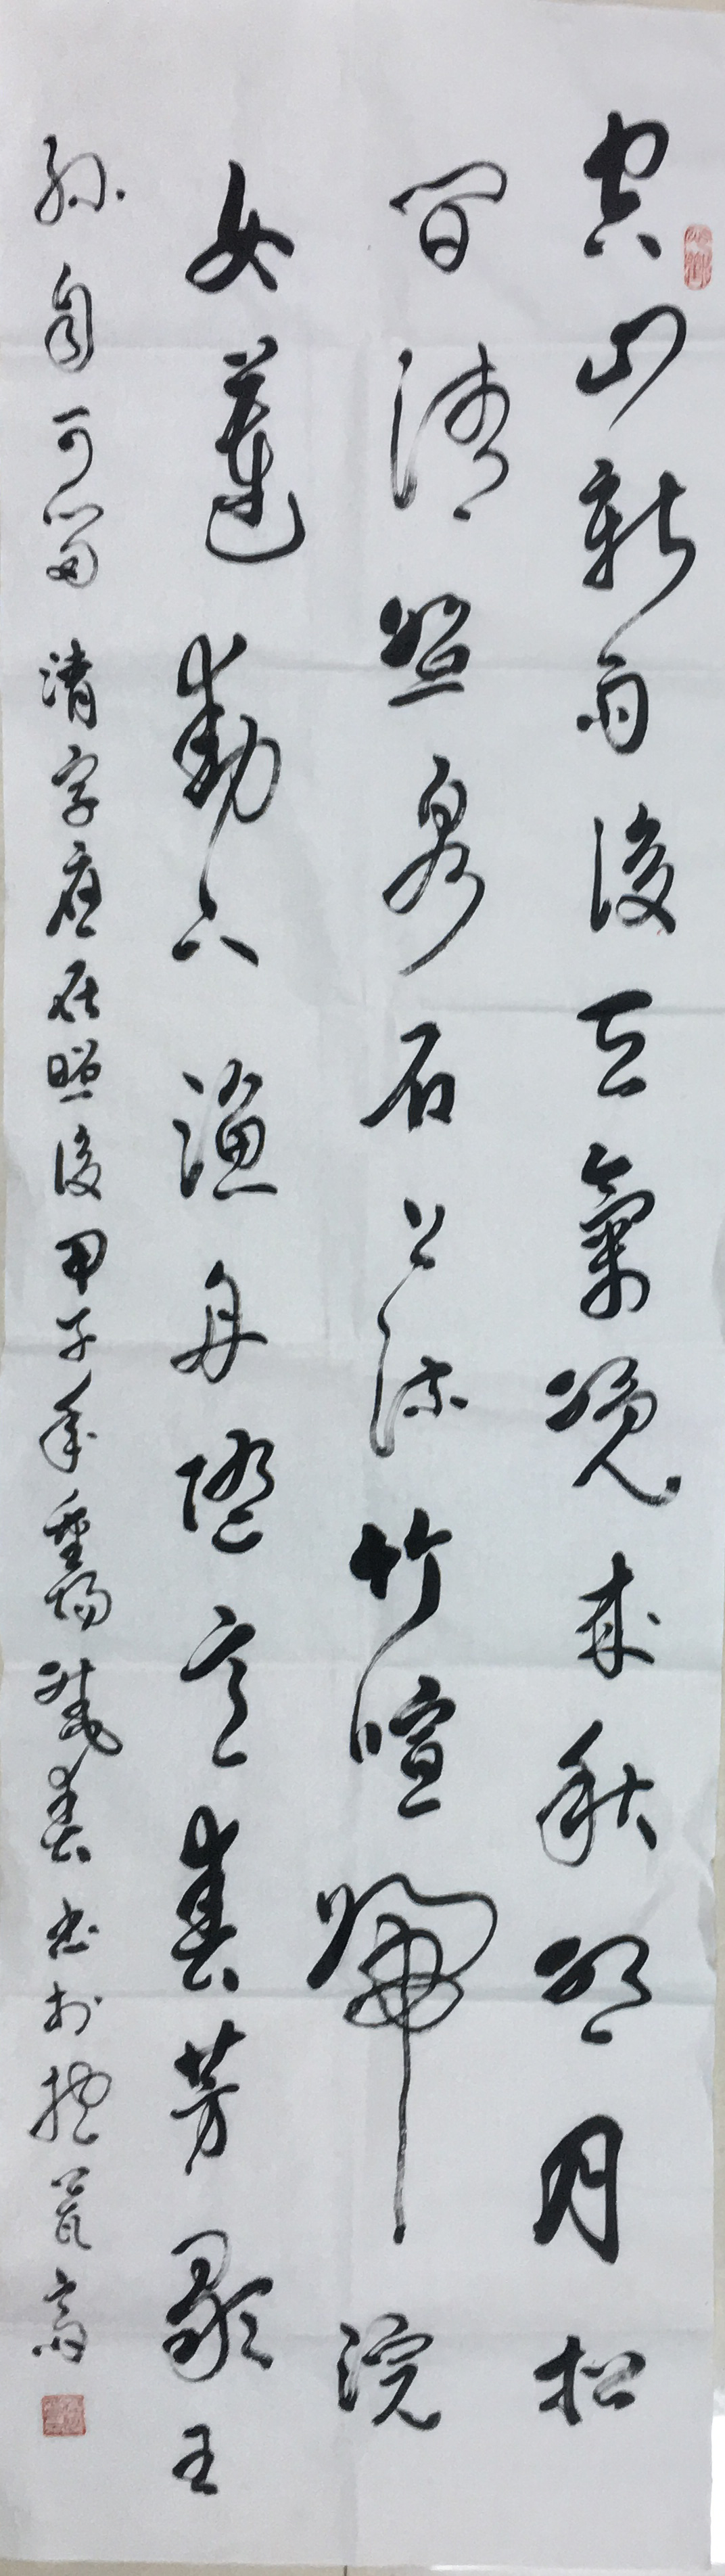 空山新雨後天氣晚來秋明月松
間清照泉石上流竹喧歸浣
女蓮動下漁舟隨意春芳歇王
孫自可留 清字應在照後 甲子年重陽 春書於